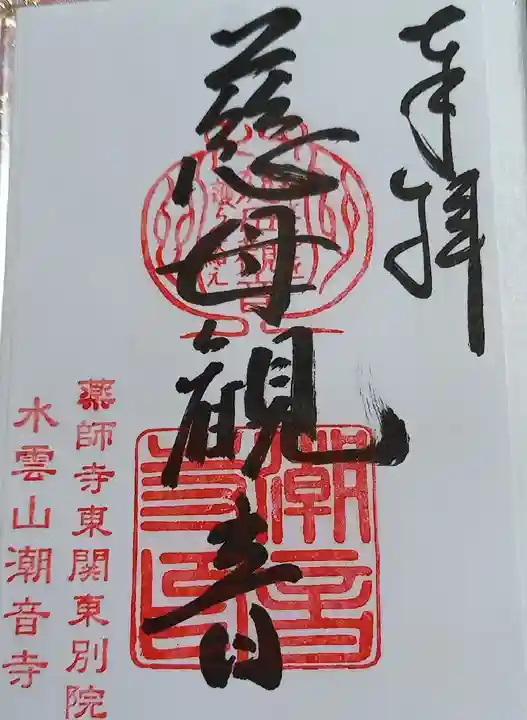 奉拝
慈母観音
潮音寺印
薬師寺東関東別院
水雲山潮音寺